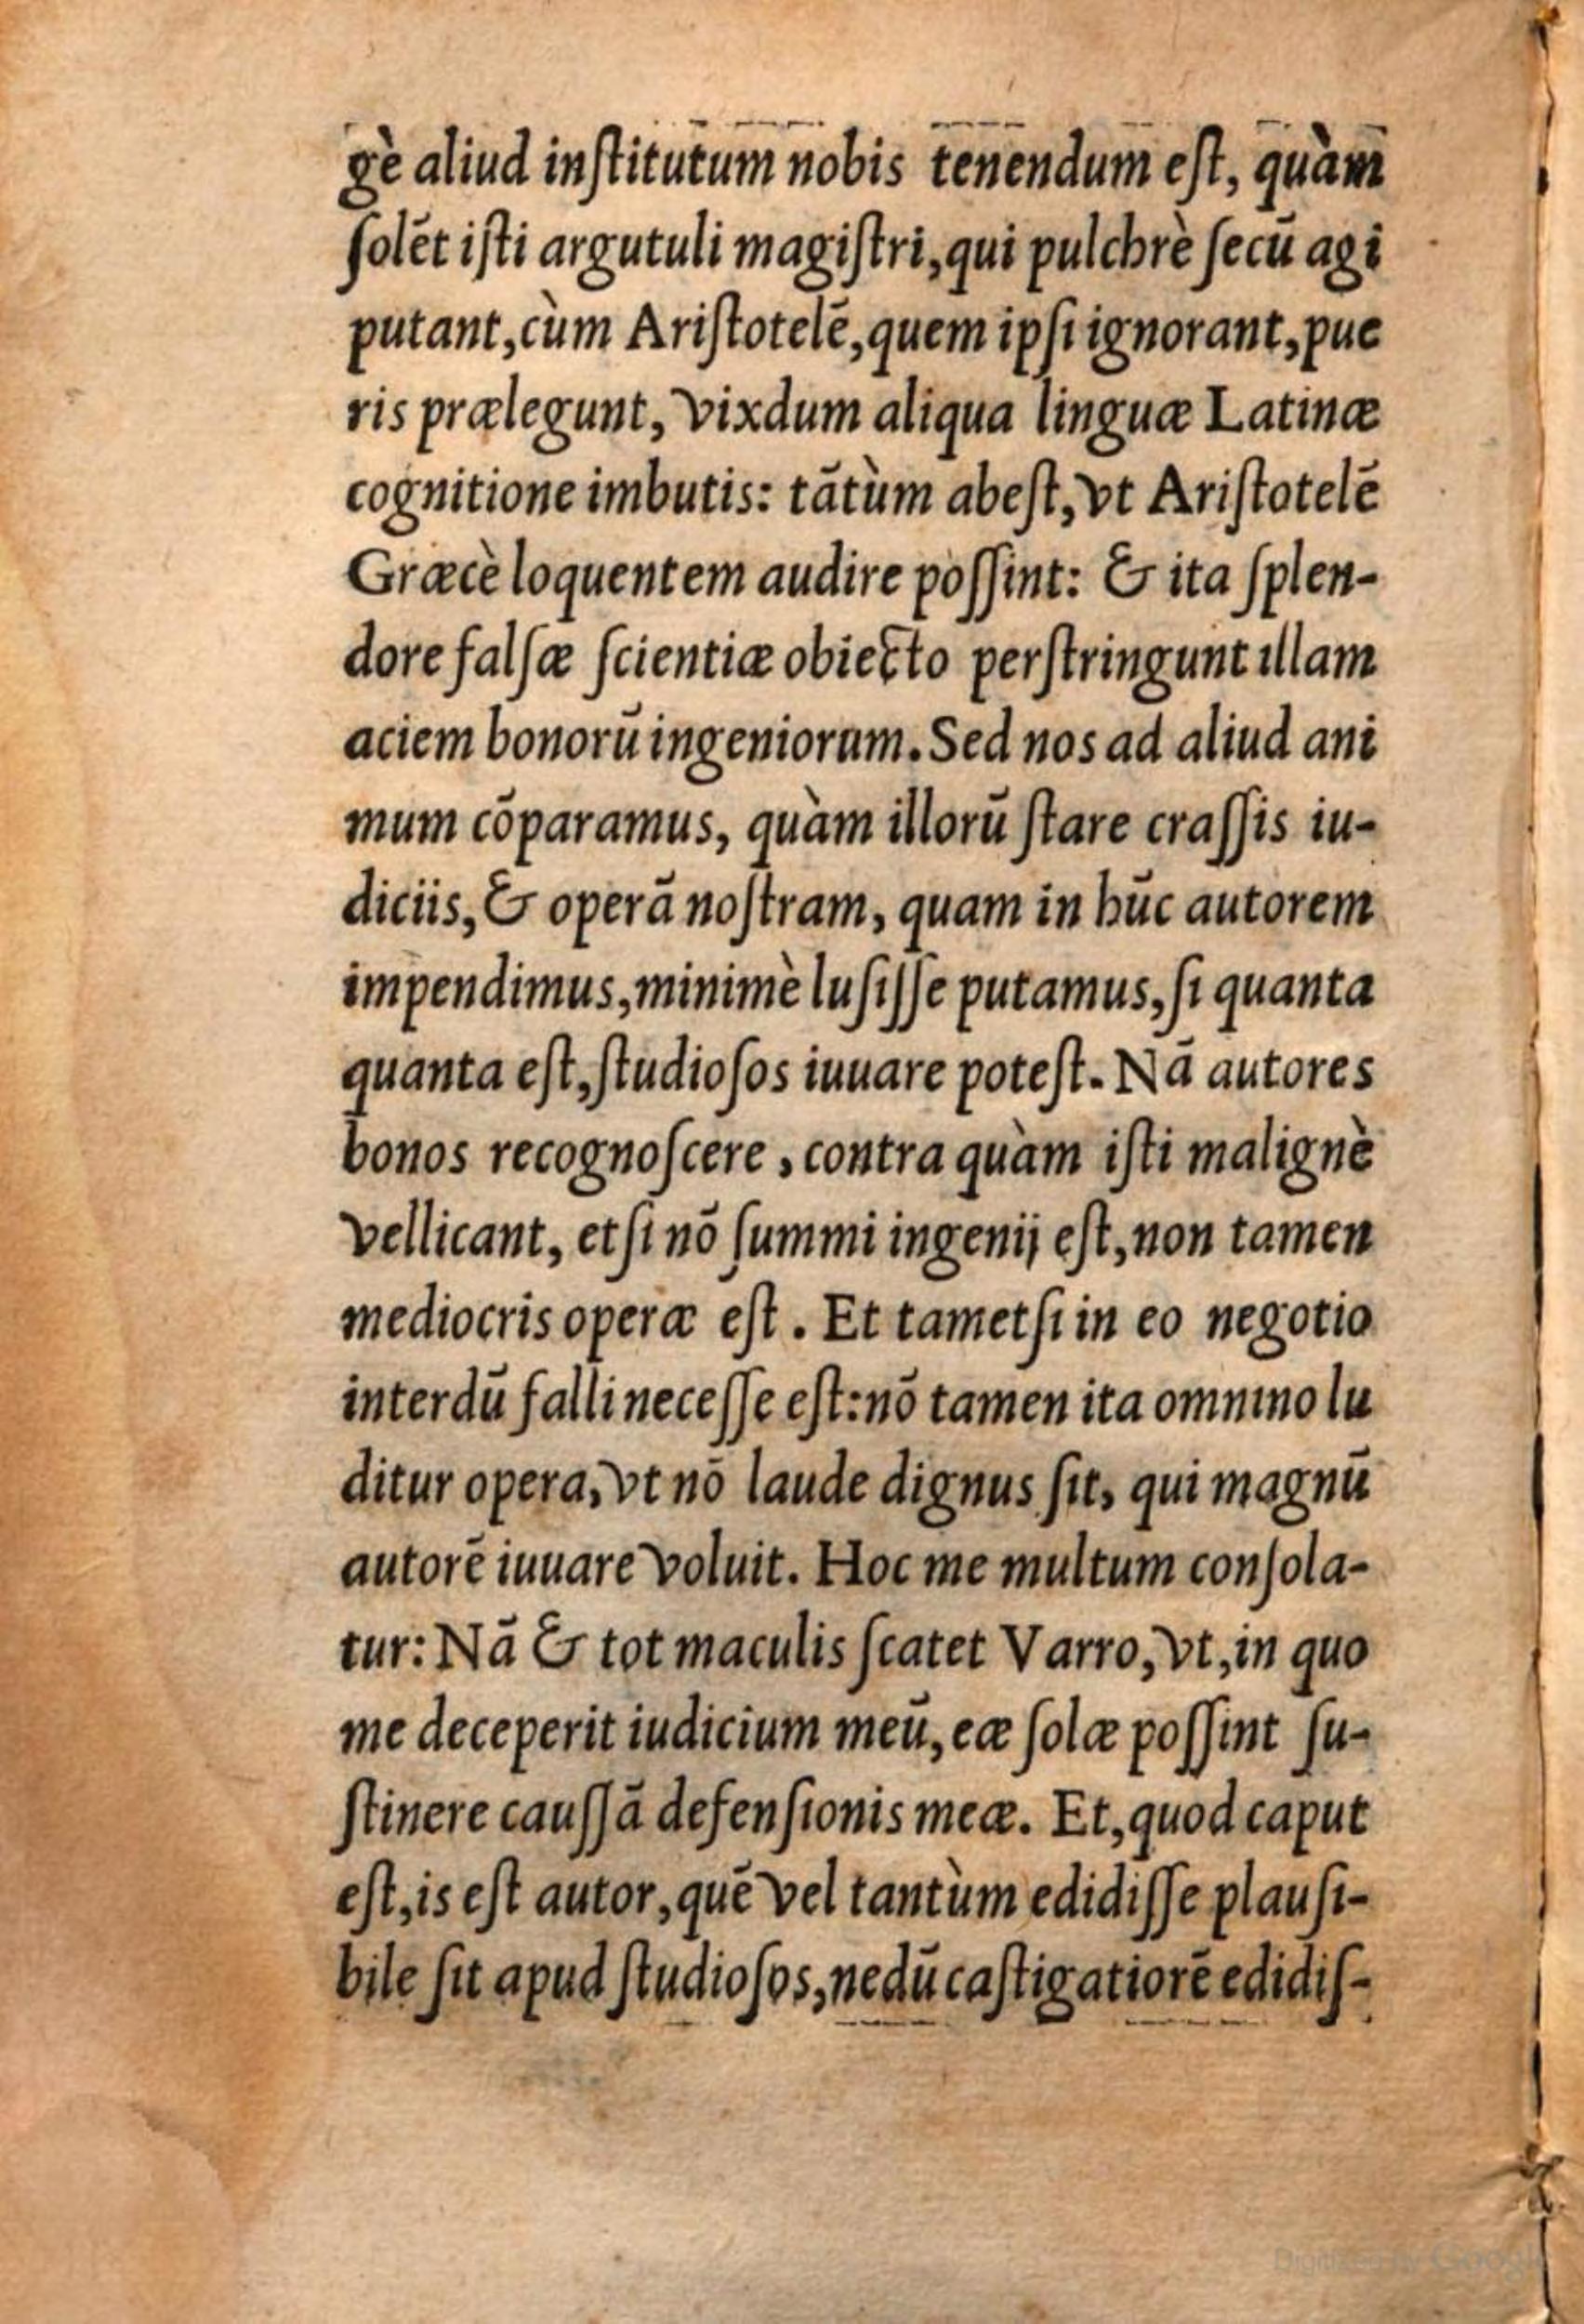 gè aliud inſtitutum nobis tenendum eſt, quàm
ſolēt iſti argutuli magiſtri, qui pulchrè ſecū agi
putant, cùm Ariſtotelē, quem ipſi ignorant, pue
ris prælegunt, vixdum aliqua linguæ Latinæ
cognitione imbutis: tātùm abeſt, vt Ariſtotelē
Græcè loquentem audire poſſint: & ita ſplen-
dore falſæ ſcientiæ obiecto perſtringunt illam
aciem bonorū ingeniorum. Sed nos ad aliud ani
mum cōparamus, quàm illorū ſtare craſſis iu-
diciis, & operā noſtram, quam in hūc autorem
impendimus, minimè luſiſſe putamus, ſi quanta
quanta eſt, ſtudioſos iuuare poteſt. Nā autores
bonos recognoſcere, contra quàm iſti malignè
vellicant, etſi nō ſummi ingenij eſt, non tamen
mediocris operæ eſt. Et tametſi in eo negotio
interdū falli neceſſe eſt: nō tamen ita omnino lu
ditur opera, vt nō laude dignus ſit, qui magnū
autorē iuuare voluit. Hoc me multum conſola-
tur: Nā & tot maculis ſcatet Varro, vt, in quo
me deceperit iudicium meū, eæ ſolæ poſſint ſu-
ſtinere cauſſā defenſionis meæ. Et, quod caput
eſt, is eſt autor, quē vel tantùm edidiſſe plauſi-
bile ſit apud ſtudioſos, nedū caſtigatiorē edidiſ-
Digitized by Google